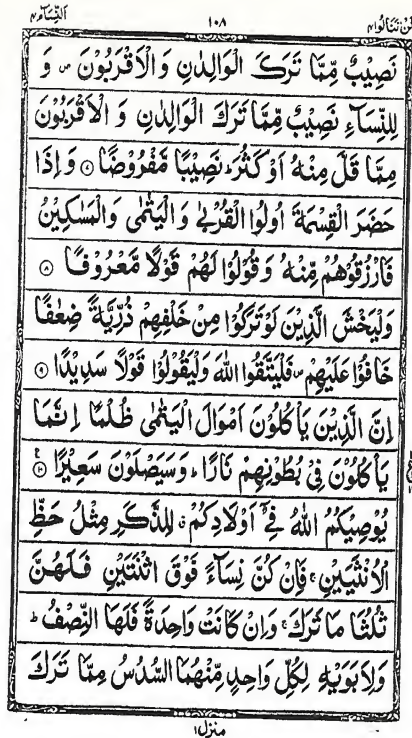 لن تنالوا ٤ ١٠٨ النسآء ٤
نَصِيْبٌ مِّمَّا تَرَكَ الْوَالِدٰنِ وَالْاَقْرَبُوْنَ ص وَ
لِلنِّسَآءِ نَصِيْبٌ مِّمَّا تَرَكَ الْوَالِدٰنِ وَ الْاَقْرَبُوْنَ
مِمَّا قَلَّ مِنْهُ اَوْ كَثُرَ ؕ نَصِيْبًا مَّفْرُوْضًا ۝۷ وَ اِذَا
حَضَرَ الْقِسْمَةَ اُولُوا الْقُرْبٰى وَ الْيَتٰمٰى وَالْمَسٰكِيْنُ
فَارْزُقُوْهُمْ مِّنْهُ وَ قُوْلُوْا لَهُمْ قَوْلًا مَّعْرُوْفًا ۝۸
وَلْيَخْشَ الَّذِيْنَ لَوْ تَرَكُوْا مِنْ خَلْفِهِمْ ذُرِّيَّةً ضِعٰفًا
خَافُوْا عَلَيْهِمْ ص فَلْيَتَّقُوا اللّٰهَ وَلْيَقُوْلُوْا قَوْلًا سَدِيْدًا ۝۹
اِنَّ الَّذِيْنَ يَاْكُلُوْنَ اَمْوَالَ الْيَتٰمٰى ظُلْمًا اِنَّمَا
يَاْكُلُوْنَ فِيْ بُطُوْنِهِمْ نَارًا ؕ وَسَيَصْلَوْنَ سَعِيْرًا ۝۱۰
يُوْصِيْكُمُ اللّٰهُ فِيْٓ اَوْلَادِكُمْ ۗ لِلذَّكَرِ مِثْلُ حَظِّ
الْاُنْثَيَيْنِ ۚ فَاِنْ كُنَّ نِسَآءً فَوْقَ اثْنَتَيْنِ فَلَهُنَّ
ثُلُثَا مَا تَرَكَ ۚ وَاِنْ كَانَتْ وَاحِدَةً فَلَهَا النِّصْفُ ؕ
وَلِاَبَوَيْهِ لِكُلِّ وَاحِدٍ مِّنْهُمَا السُّدُسُ مِمَّا تَرَكَ
منزل ١